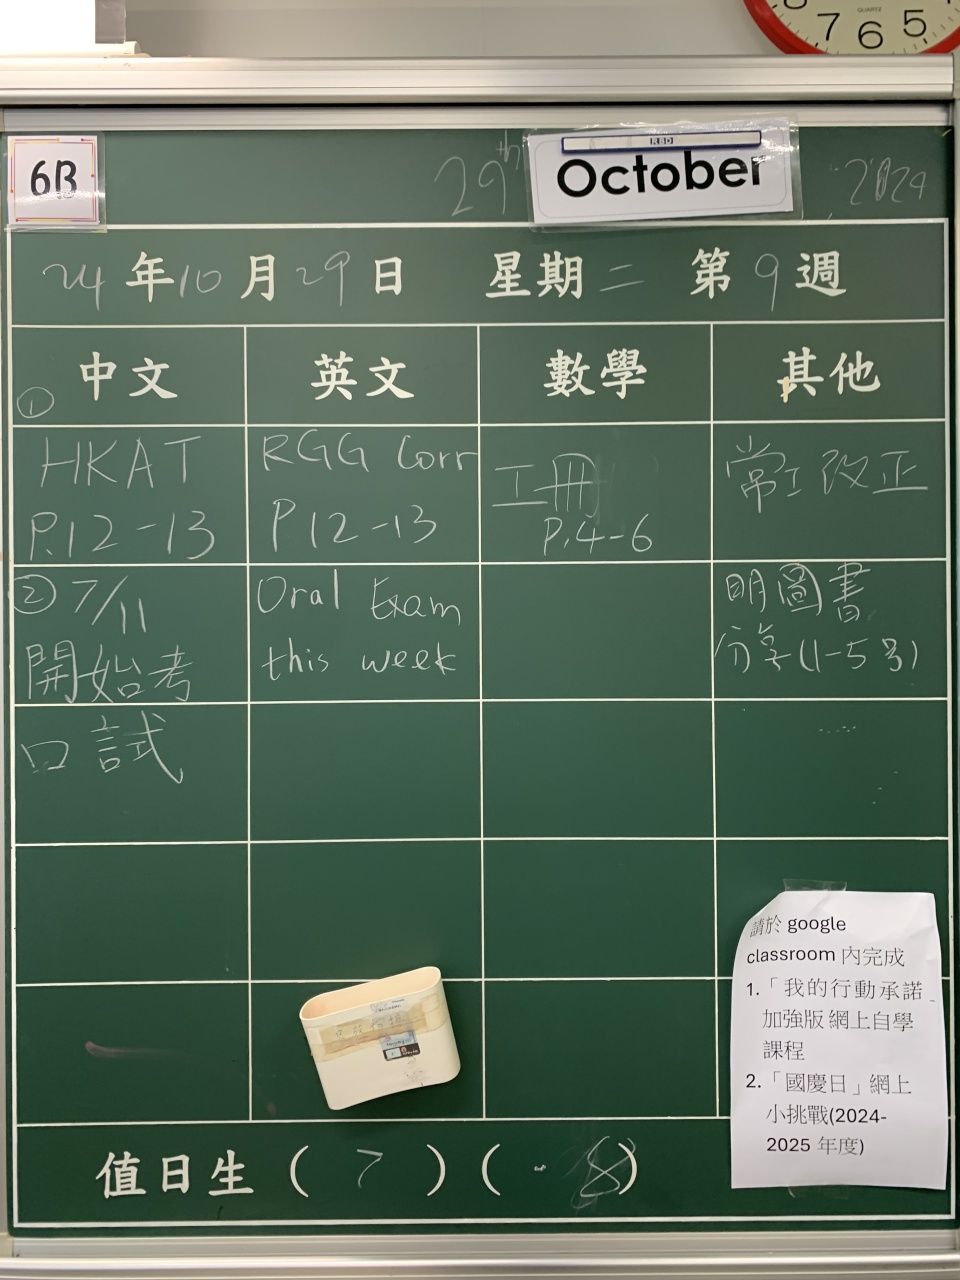 7 6 5
QUARTZ
6B
29th October 2024
RBD
24年10月29日 星期二 第9週
中文 英文 數學 其他
① HKAT
P.12-13
RGG Corr
P12-13
工冊
P.4-6
常工改正
② 7/11
開始考
口試
Oral Exam
this week
明圖書
分享(1-5號)
請於 google
classroom 內完成
1.「我的行動承諾
加強版 網上自學
課程
2.「國慶日」網上
小挑戰(2024-
2025 年度)
值日生 ( 7 ) ( 8 )